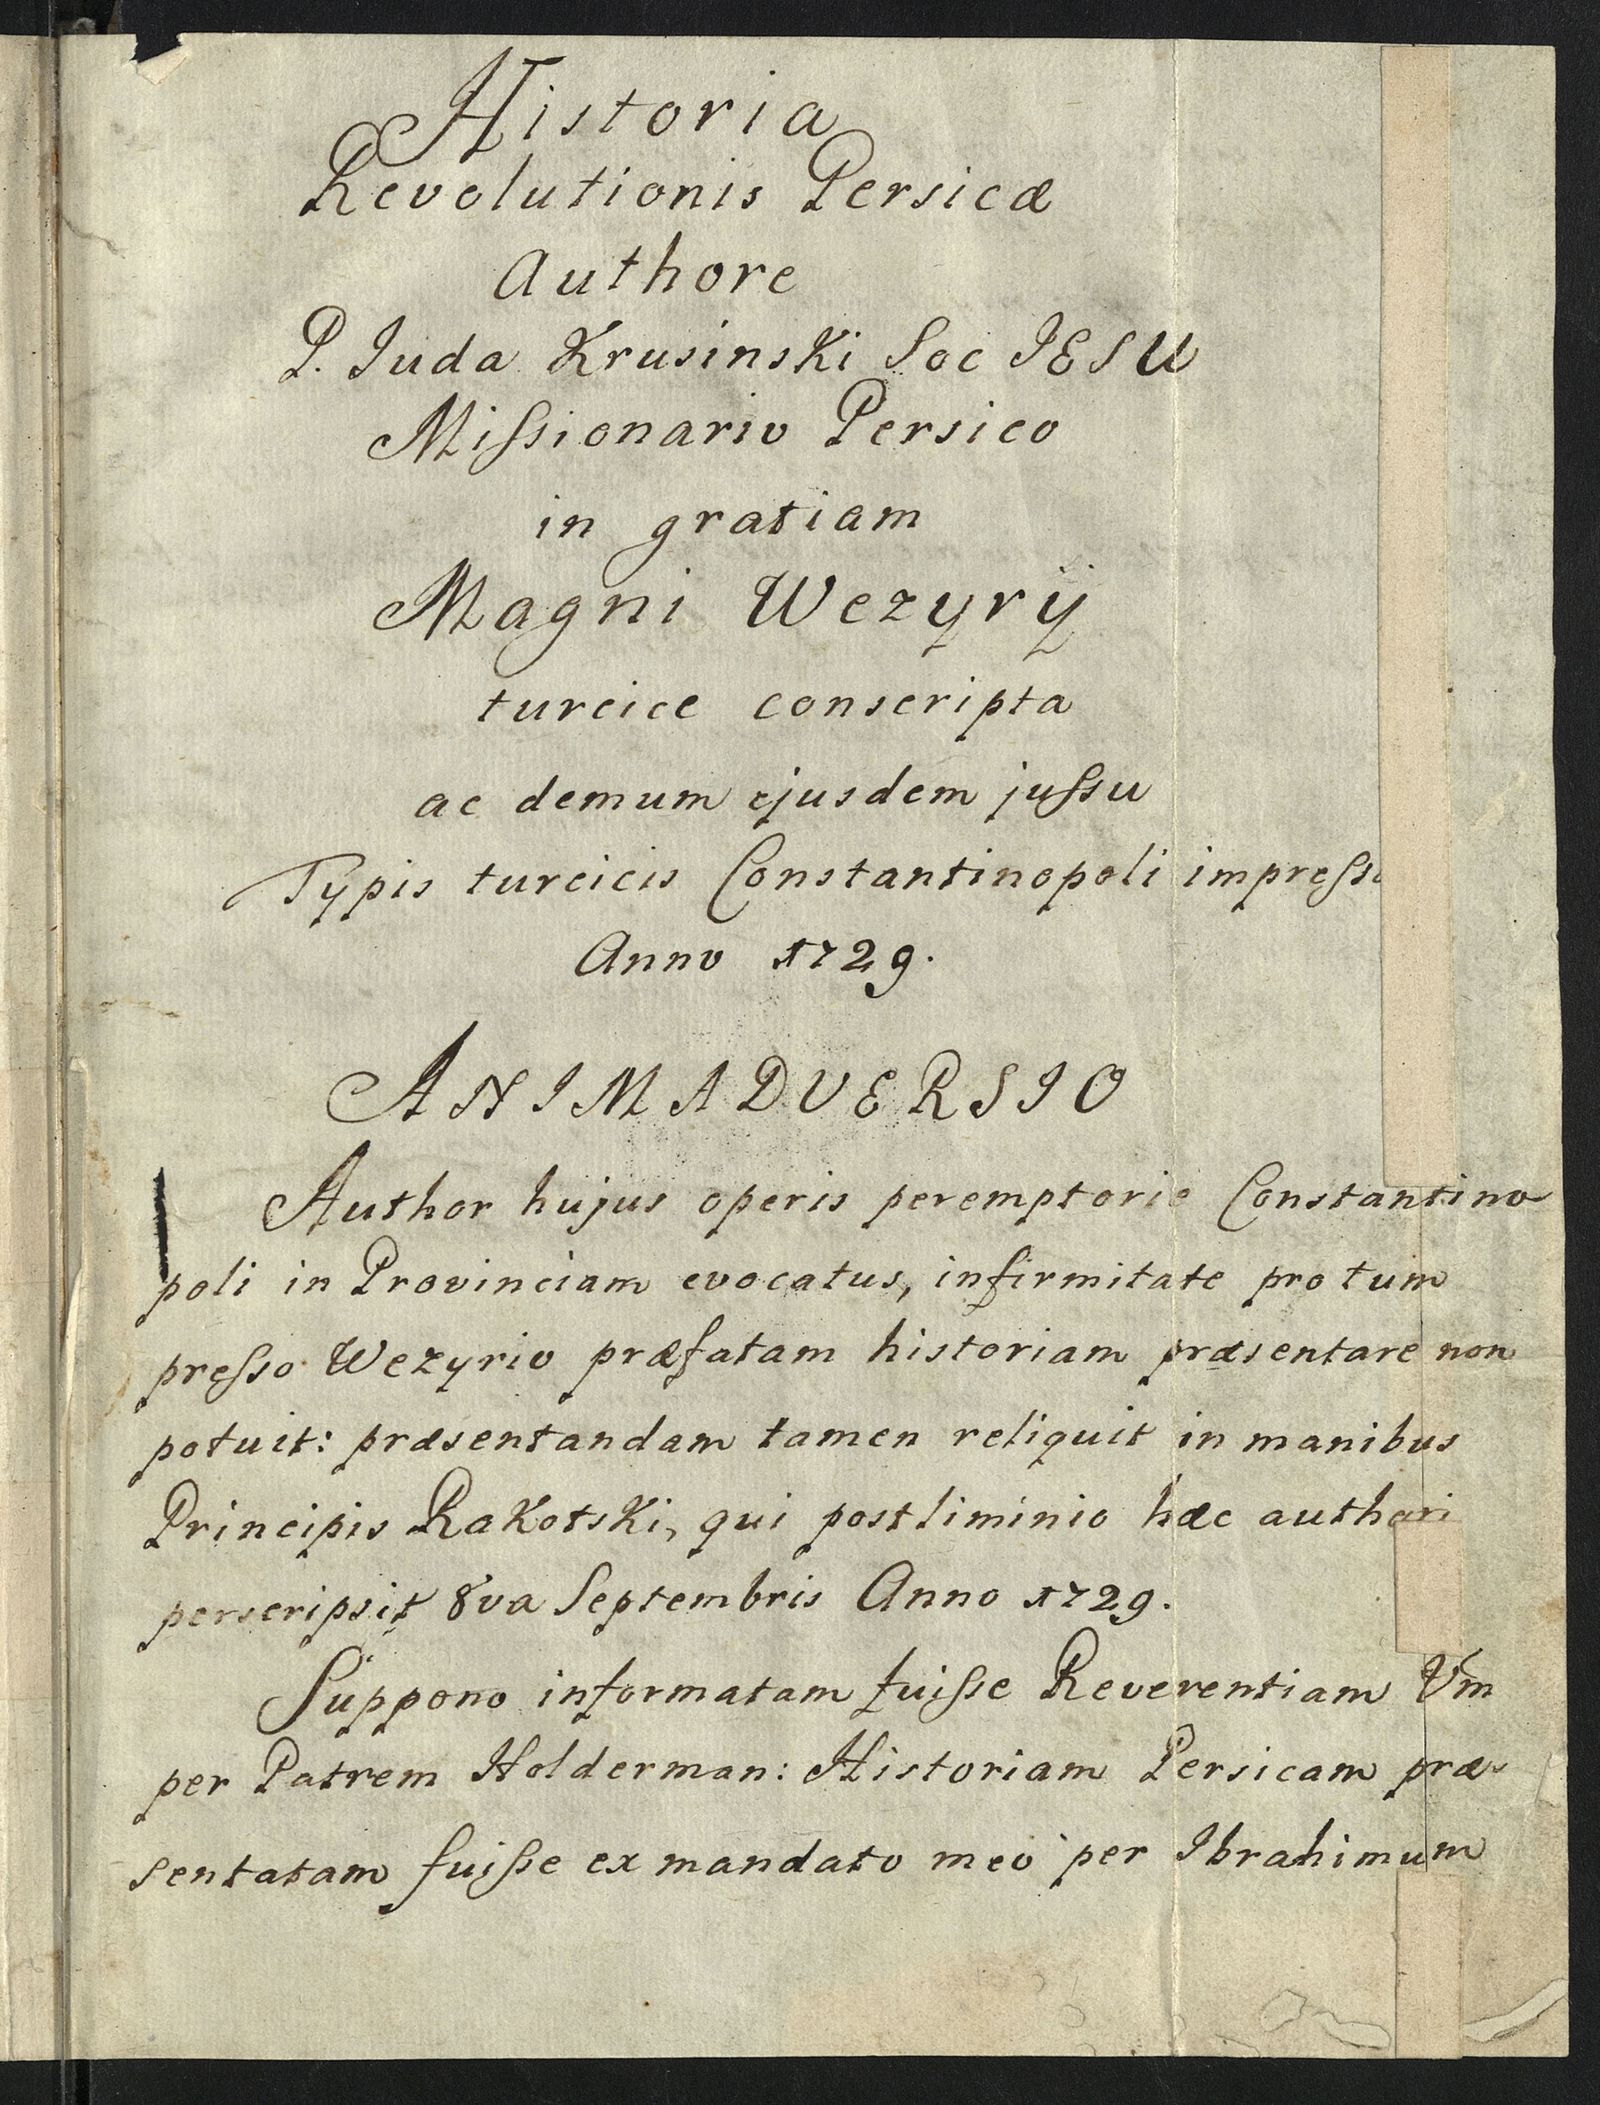 Historia
Revolutionis Persicæ
Authore
P. Iuda Krusinski Soc IESU
Missionario Persico
in gratiam
Magni Wezyrij
turcice conscripta
ac demum ejusdem jussu
Typis turcicis Constantinopoli impress
Anno 1729.
ANIMADVERSIO
Author hujus operis peremptorie Constantino
poli in Provinciam evocatus, infirmitate pro tum
presso Wezyrio præfatam historiam præsentare non
potuit: præsentandam tamen reliquit in manibus
Principis Rakotski, qui postliminio hæc authori
perscripsit 8va Septembris Anno 1729.
Suppono informatam fuisse Reverentiam Vm
per Patrem Holderman: Historiam Persicam præ-
sentatam fuisse ex mandato meo per Ibrahimum